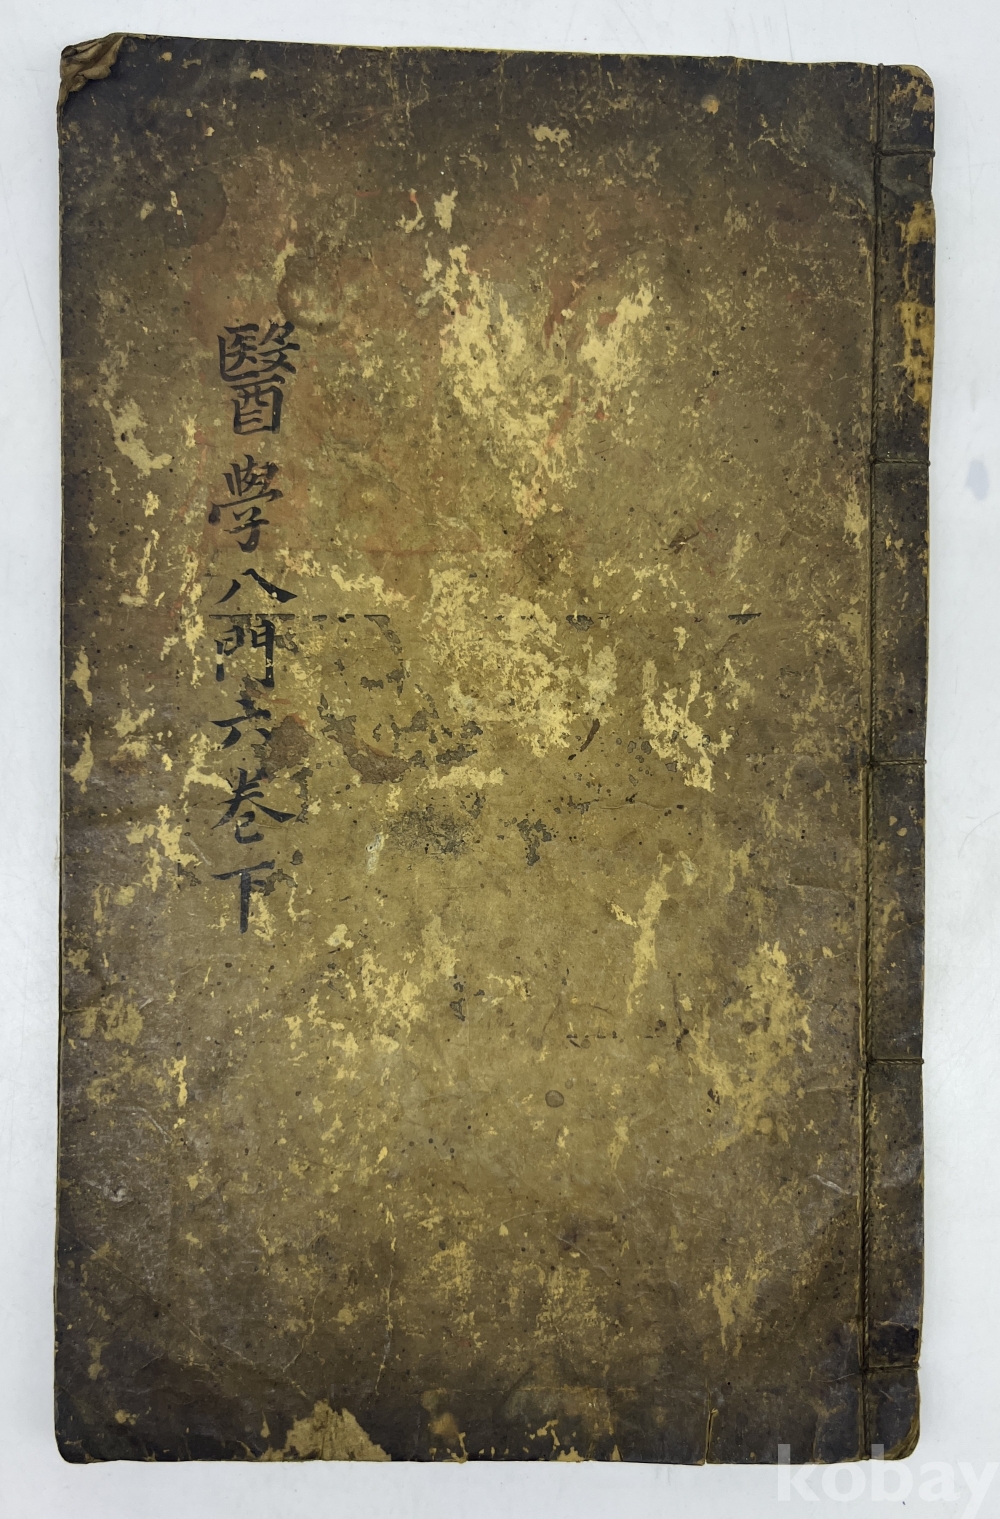 醫學八門六卷下
kobay